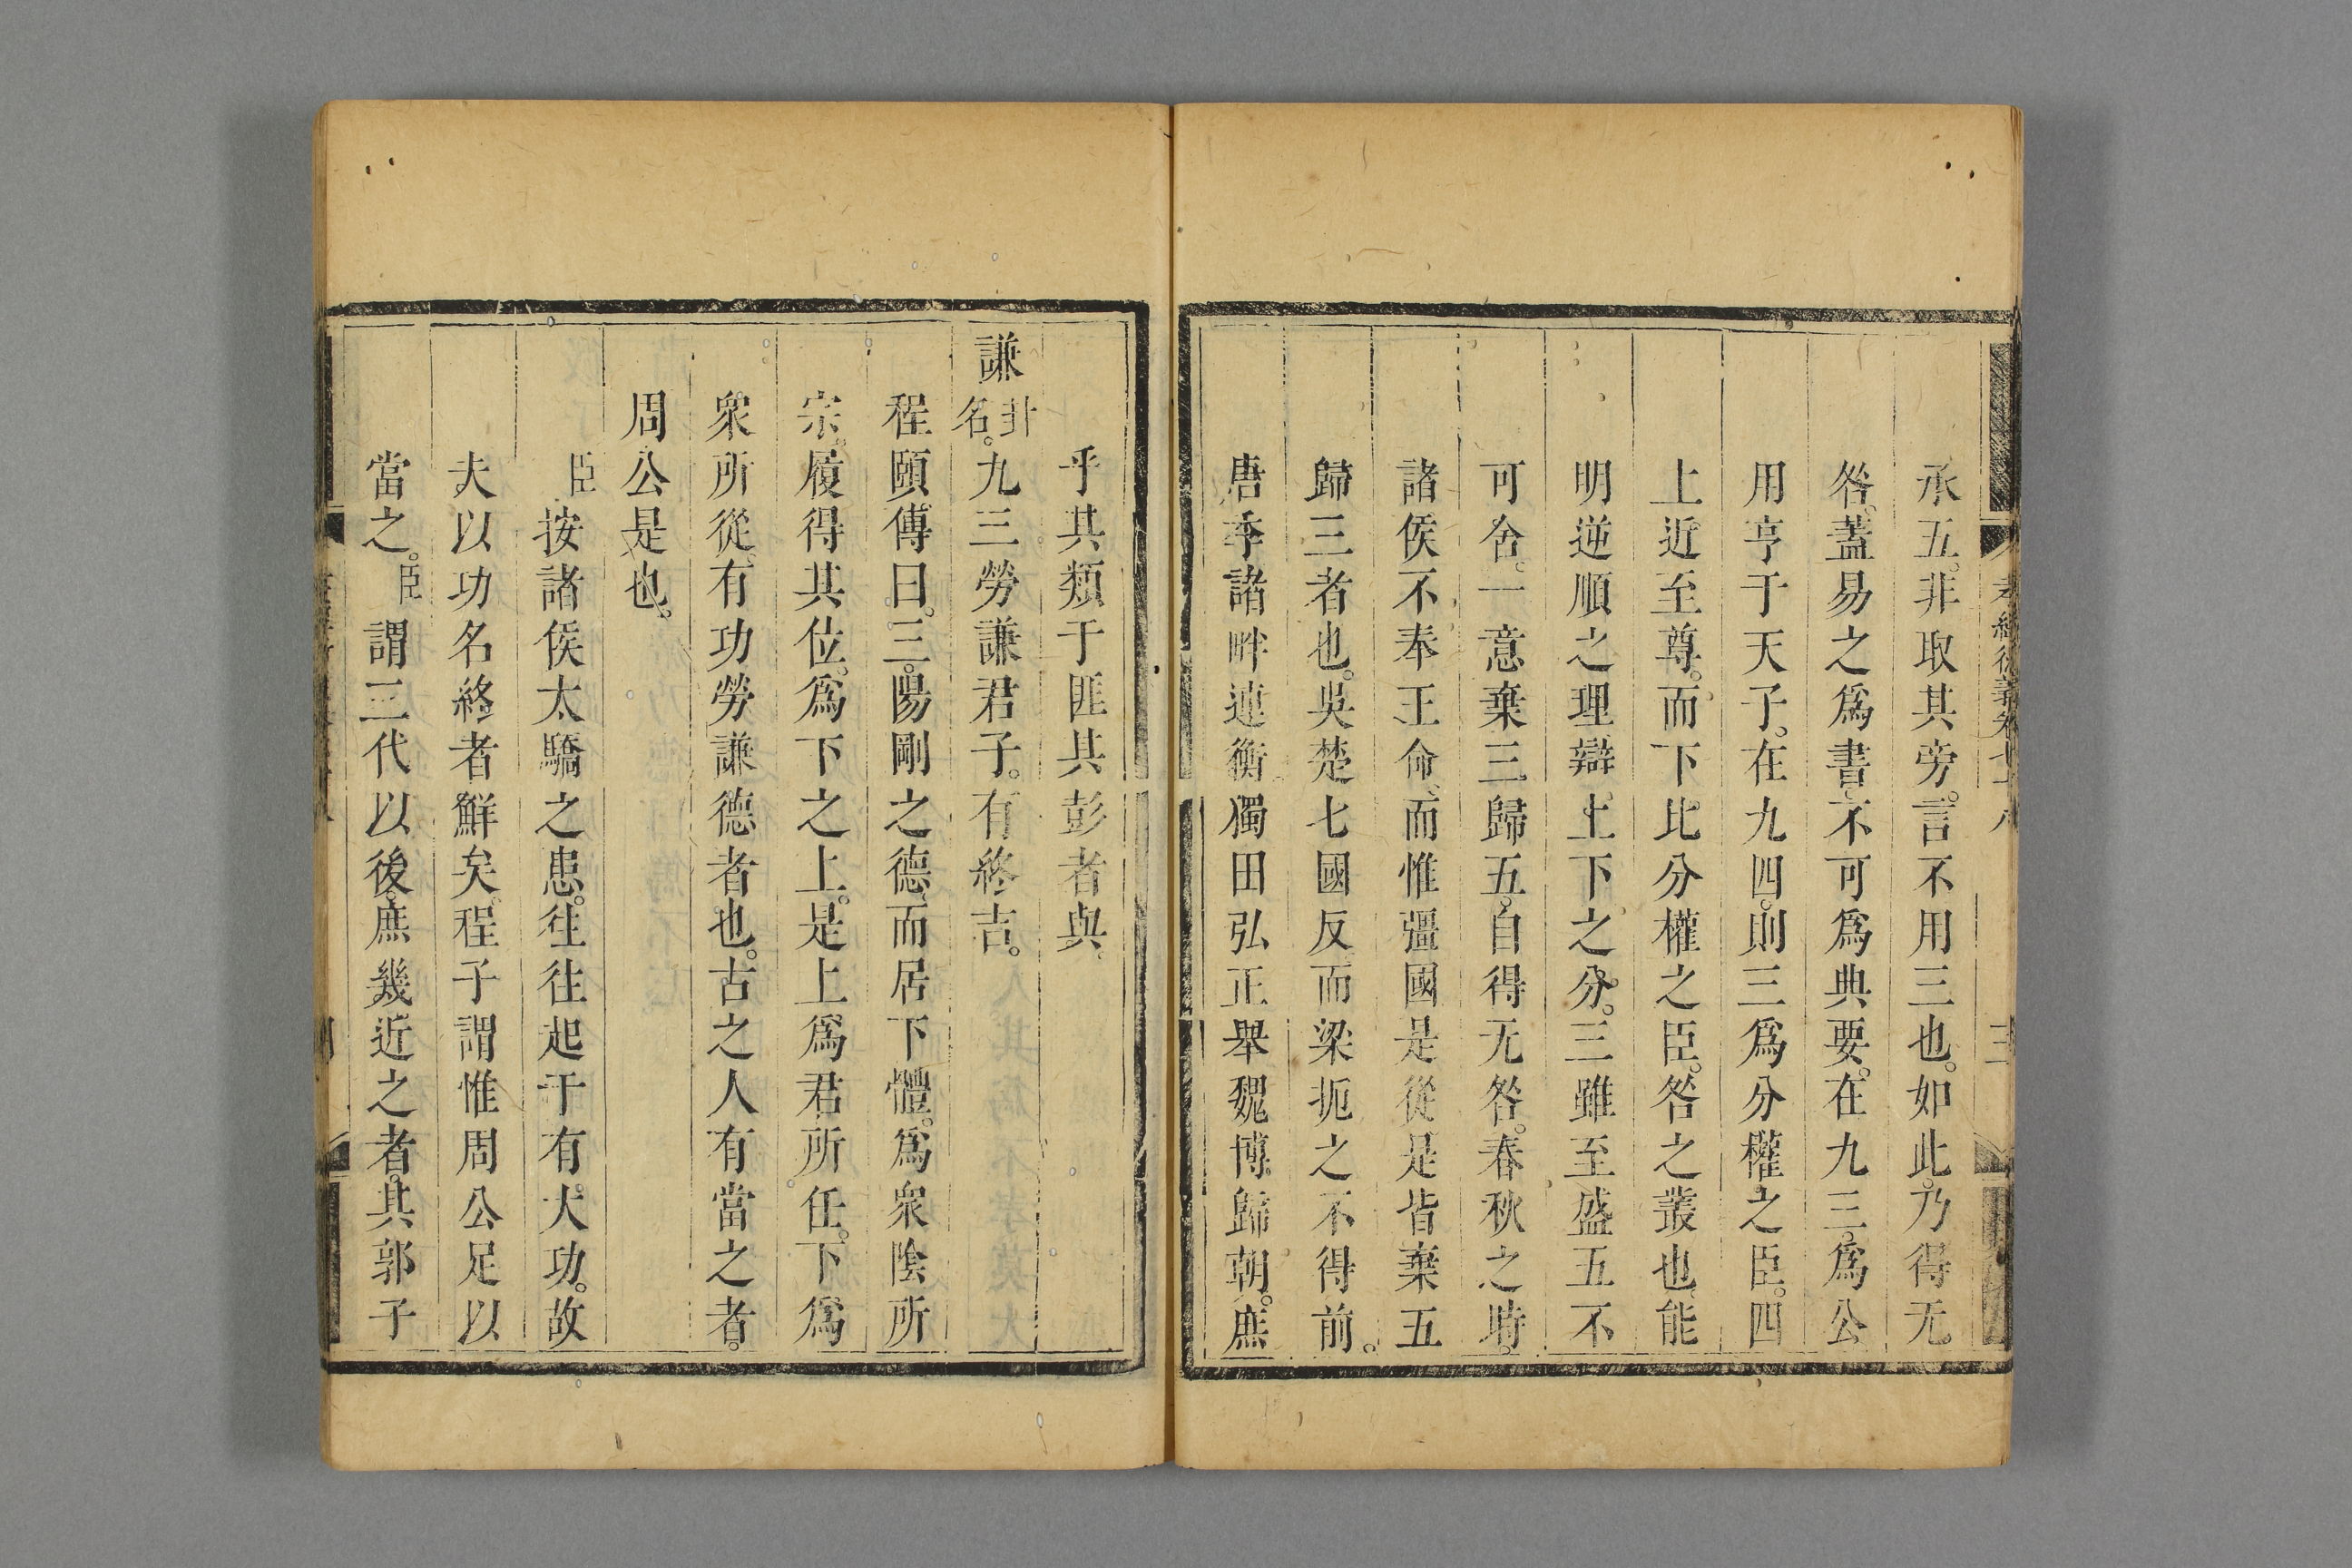 承五。非取其旁。言不用三也。如此。乃得无
咎。蓋易之爲書。不可爲典要。在九三。爲公
用亨于天子。在九四。則三爲分權之臣。四
上近至尊。而下比分權之臣。咎之叢也。能
明逆順之理。辯上下之分。三雖至盛。五不
可舍。一意棄三歸五。自得无咎。春秋之時。
諸侯不奉王命、而惟彊國是從。是皆棄五
歸三者也。吳楚七國反。而梁扼之不得前。
唐季諸畔連衡。獨田弘正舉魏博歸朝。庶
乎其類于匪其彭者與
謙卦名。九三勞謙君子。有終吉。
程頤傳曰。三。陽剛之德、而居下體。爲衆陰所
宗。履得其位。爲下之上。是上爲君所任。下爲
衆所從。有功勞謙德者也。古之人有當之者。
周公是也。
臣按諸侯太驕之患。往往起于有大功。故
夫以功名終者鮮矣。程子謂惟周公足以
當之。臣謂三代以後。庶幾近之者。其郭子